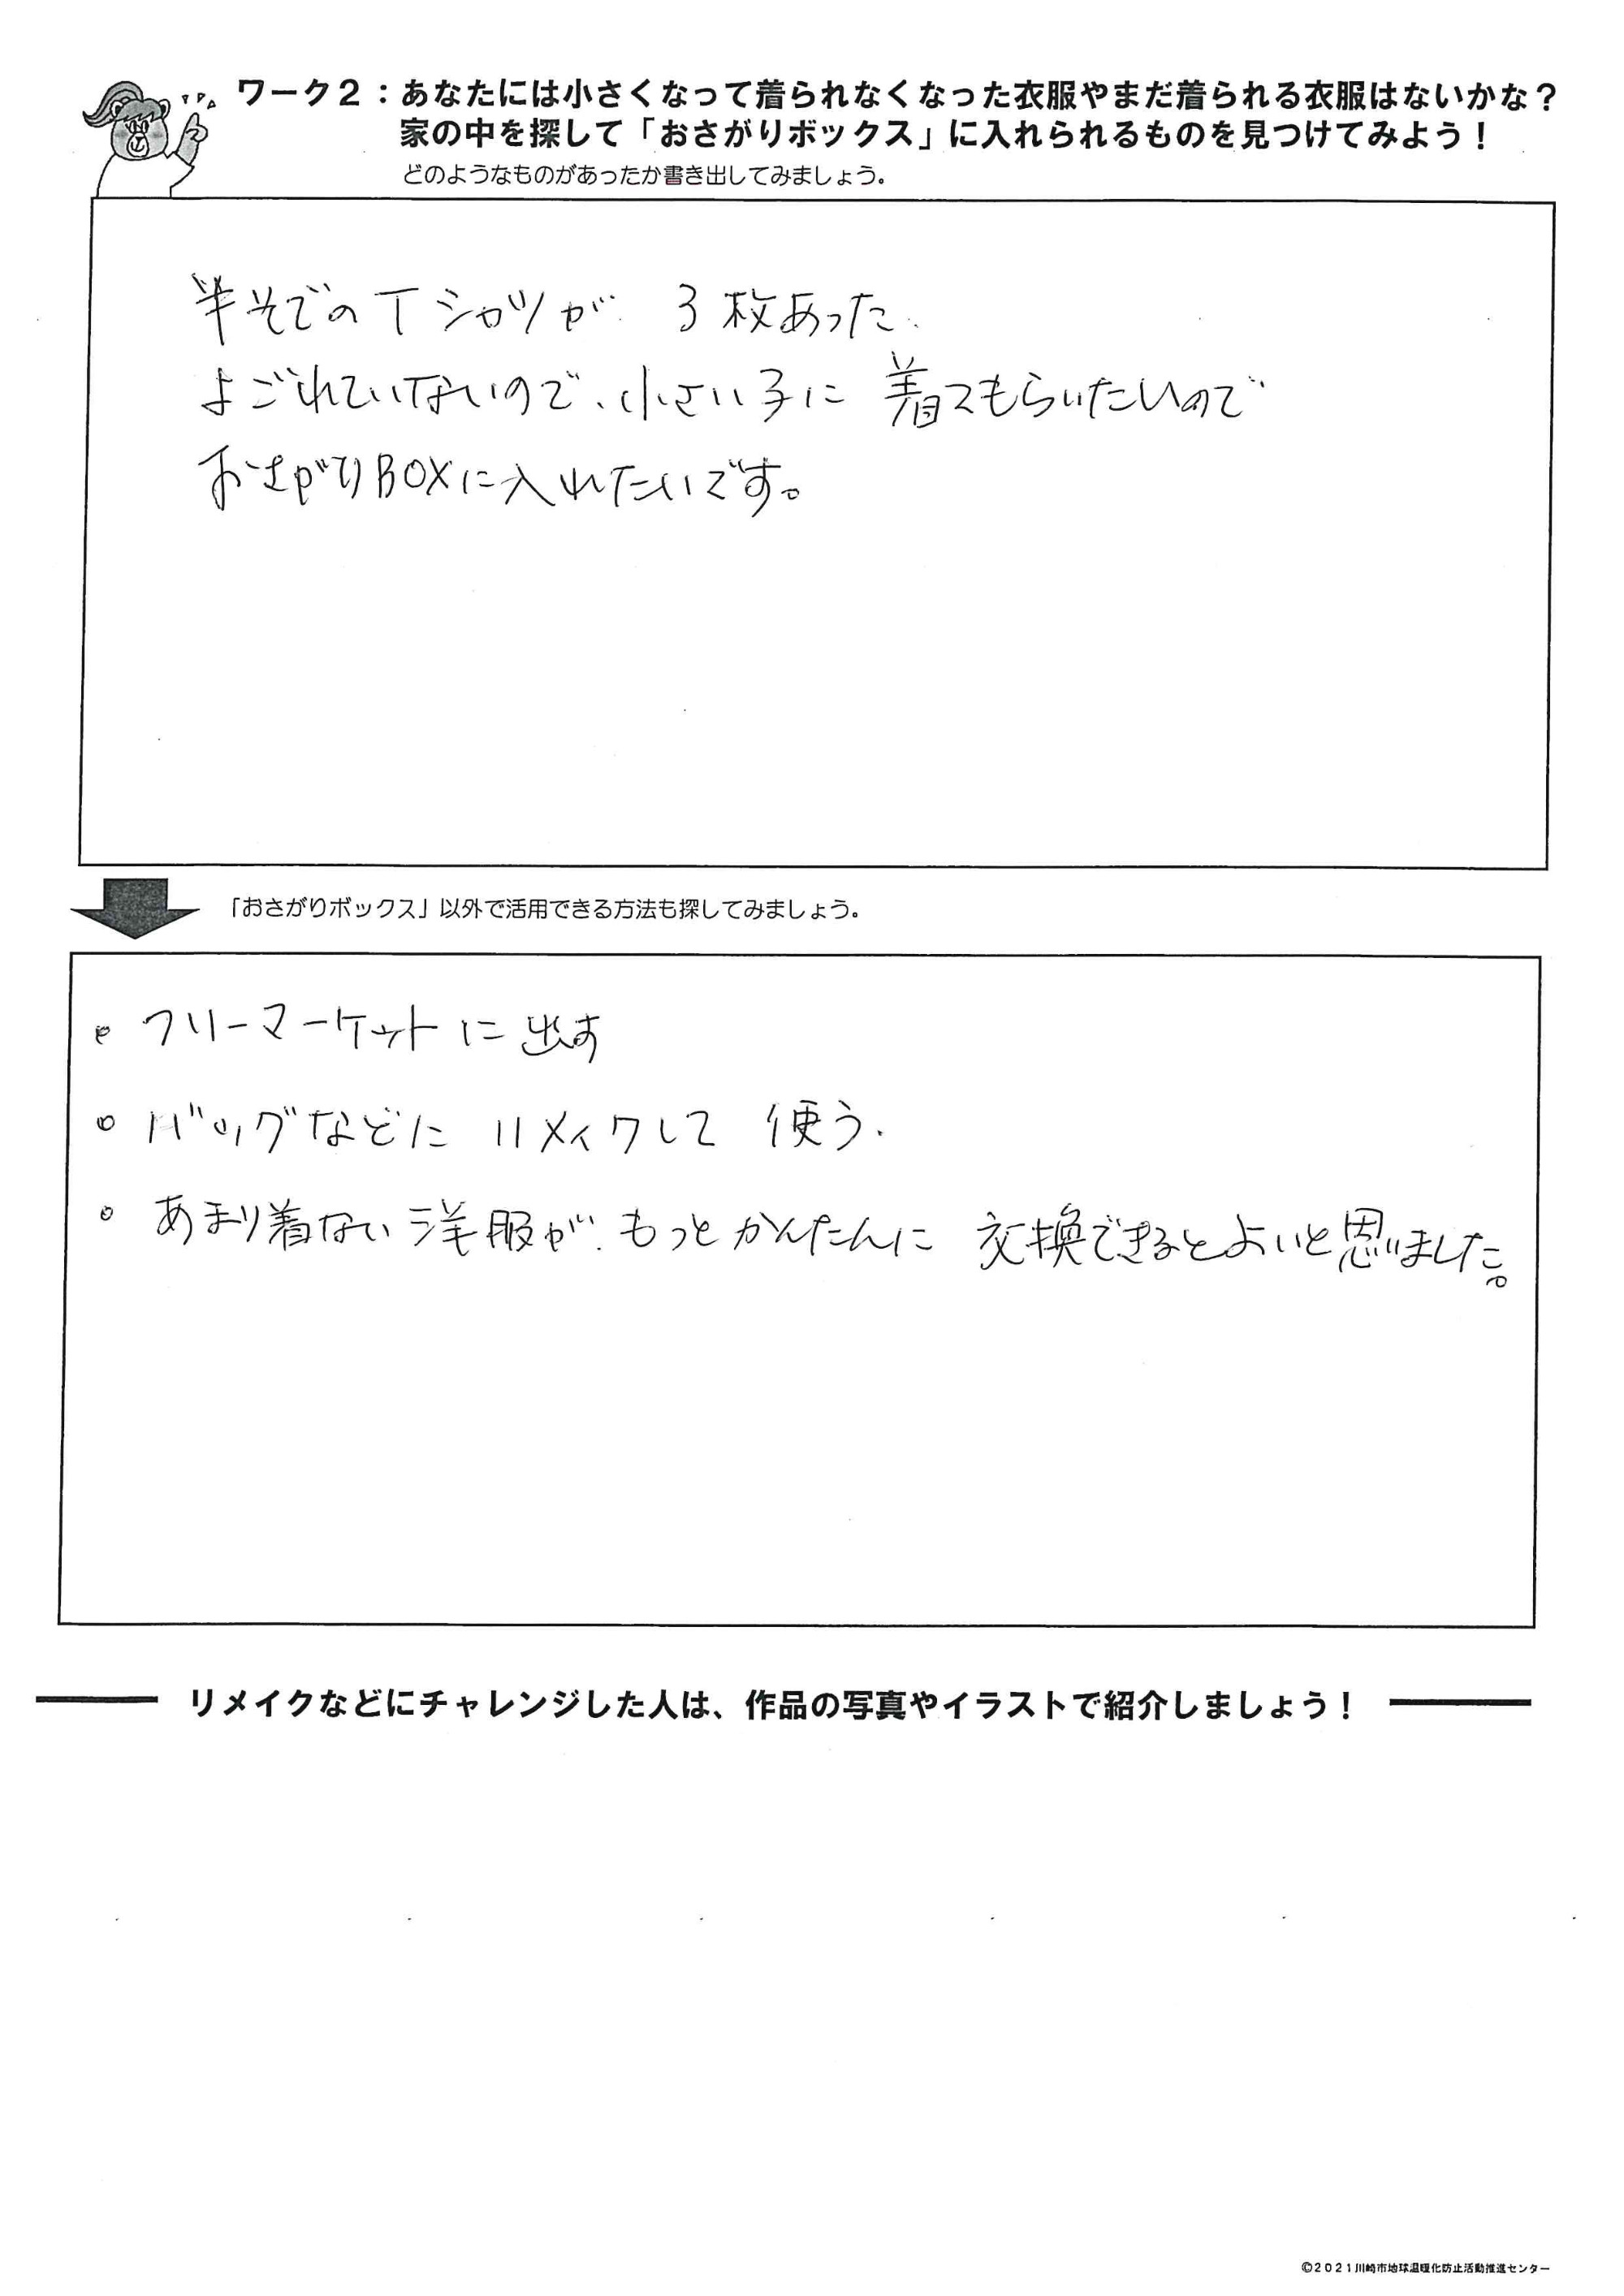 ワーク２：あなたには小さくなって着られなくなった衣服やまだ着られる衣服はないかな？
家の中を探して「おさがりボックス」に入れられるものを見つけてみよう！
どのようなものがあったか書き出してみましょう。
半そでのTシャツが 3枚あった
よごれていないので、小さい子に 着てもらいたいので
おさがりBOXに入れたいです。
「おさがりボックス」以外で活用できる方法も探してみましょう。
• フリーマーケットに出す
• バッグなどに リメイクして 使う.
• あまり着ない洋服が もっとかんたんに 交換できるとよいと思いました。
リメイクなどにチャレンジした人は、作品の写真やイラストで紹介しましょう！
©２０２１川崎市地球温暖化防止活動推進センター